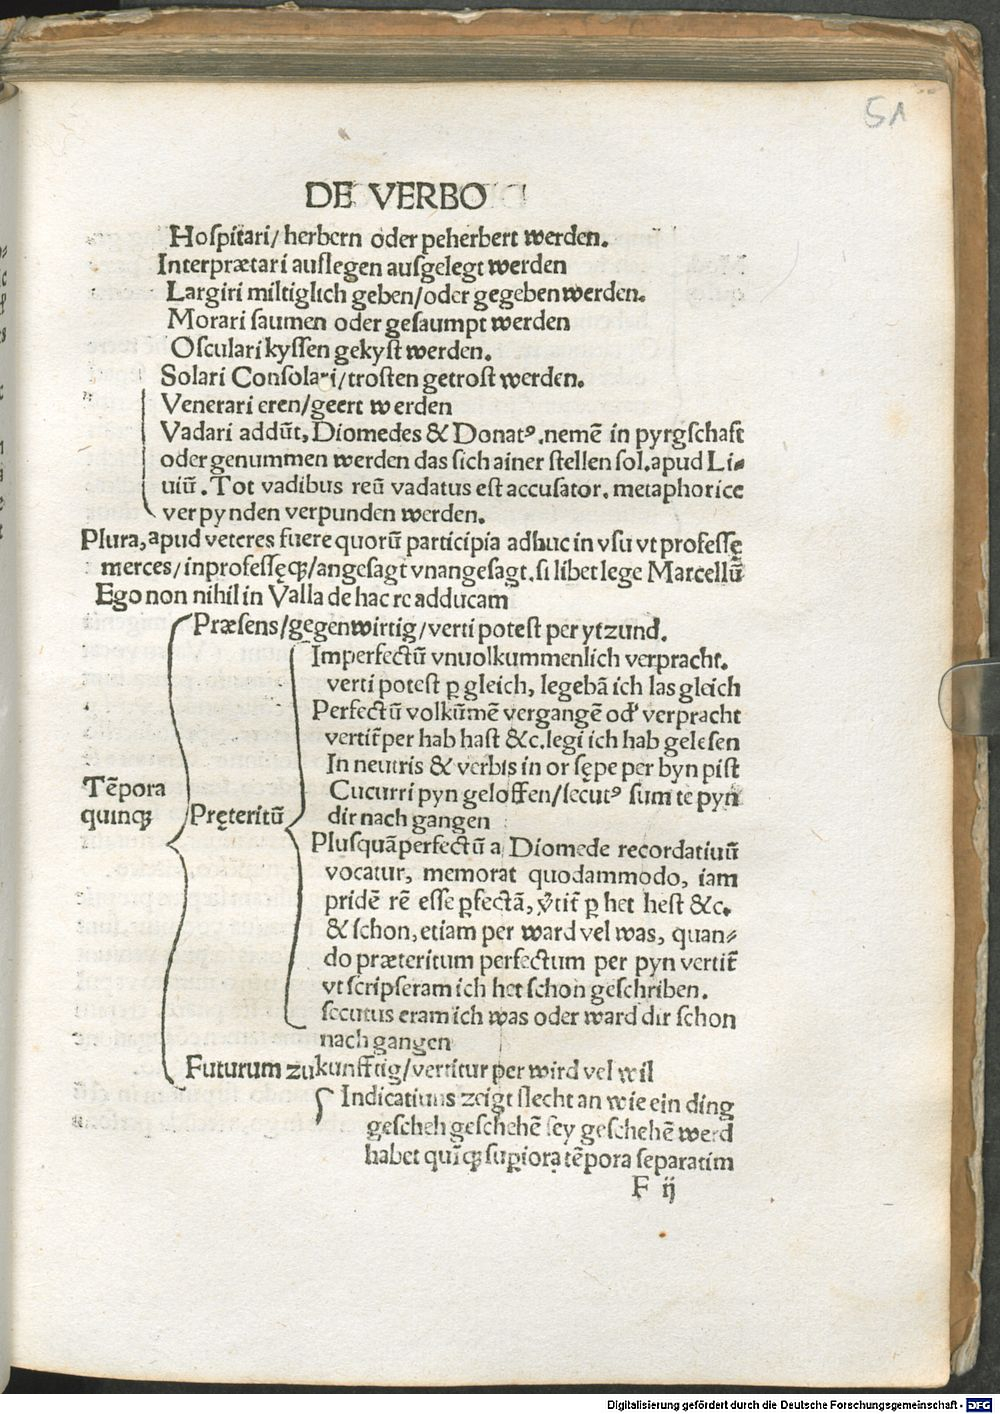 51
DE VERBO
Hospitari/ herbern oder peherbert werden.
Interprætari auslegen ausgelegt werden
Largiri miltiglich geben/oder gegeben werden.
Morari saumen oder gesaumpt werden
Osculari kyssen gekyst werden.
Solari Consolari/trosten getrost werden.
Venerari eren/geert werden
Vadari addūt, Diomedes & Donatꝰ.nemē in pyrgschaft
oder genummen werden das sich ainer stellen sol.apud Li-
uiū. Tot vadibus reū vadatus est accusator. metaphorice
verpynden verpunden werden.
Plura, apud veteres fuere quorū participia adhuc in vsu vt professę
merces/inprofessęqꝫ/angesagt vnangesagt.si libet lege Marcellū
Ego non nihil in Valla de hac re adducam
Præsens/gegenwirtig/verti potest per ytzund.
Imperfectū vnuolkummenlich verpracht.
verti potest ꝑ gleich, legebā ich las gleich
Perfectū volkūmē vergangē od' verpracht
vertit̄ per hab hast &c.legi ich hab gelesen
In neutris & verbis in or sępe per byn pist
Tēpora
Cucurri pyn geloffen/secutꝰ sum te pyn
quinqꝫ
Pręteritū
dir nach gangen
Plusquāperfectū a Diomede recordatiuū
vocatur, memorat quodammodo, iam
pridē rē esse ꝑfectā, v̄tit̄ ꝑ het hest &c.
& schon, etiam per ward vel was, quan-
do præteritum perfectum per pyn vertit̄
vt scripseram ich het schon geschriben.
secutus eram ich was oder ward dir schon
nach gangen
Futurum zukunfftig/vertitur per wird vel wil
Indicatiuus zeigt slecht an wie ein ding
gescheh geschehē sey geschehē werd
habet quīqꝫ superiora tēpora separatim
F ij
Digitalisierung gefördert durch die Deutsche Forschungsgemeinschaft - DFG